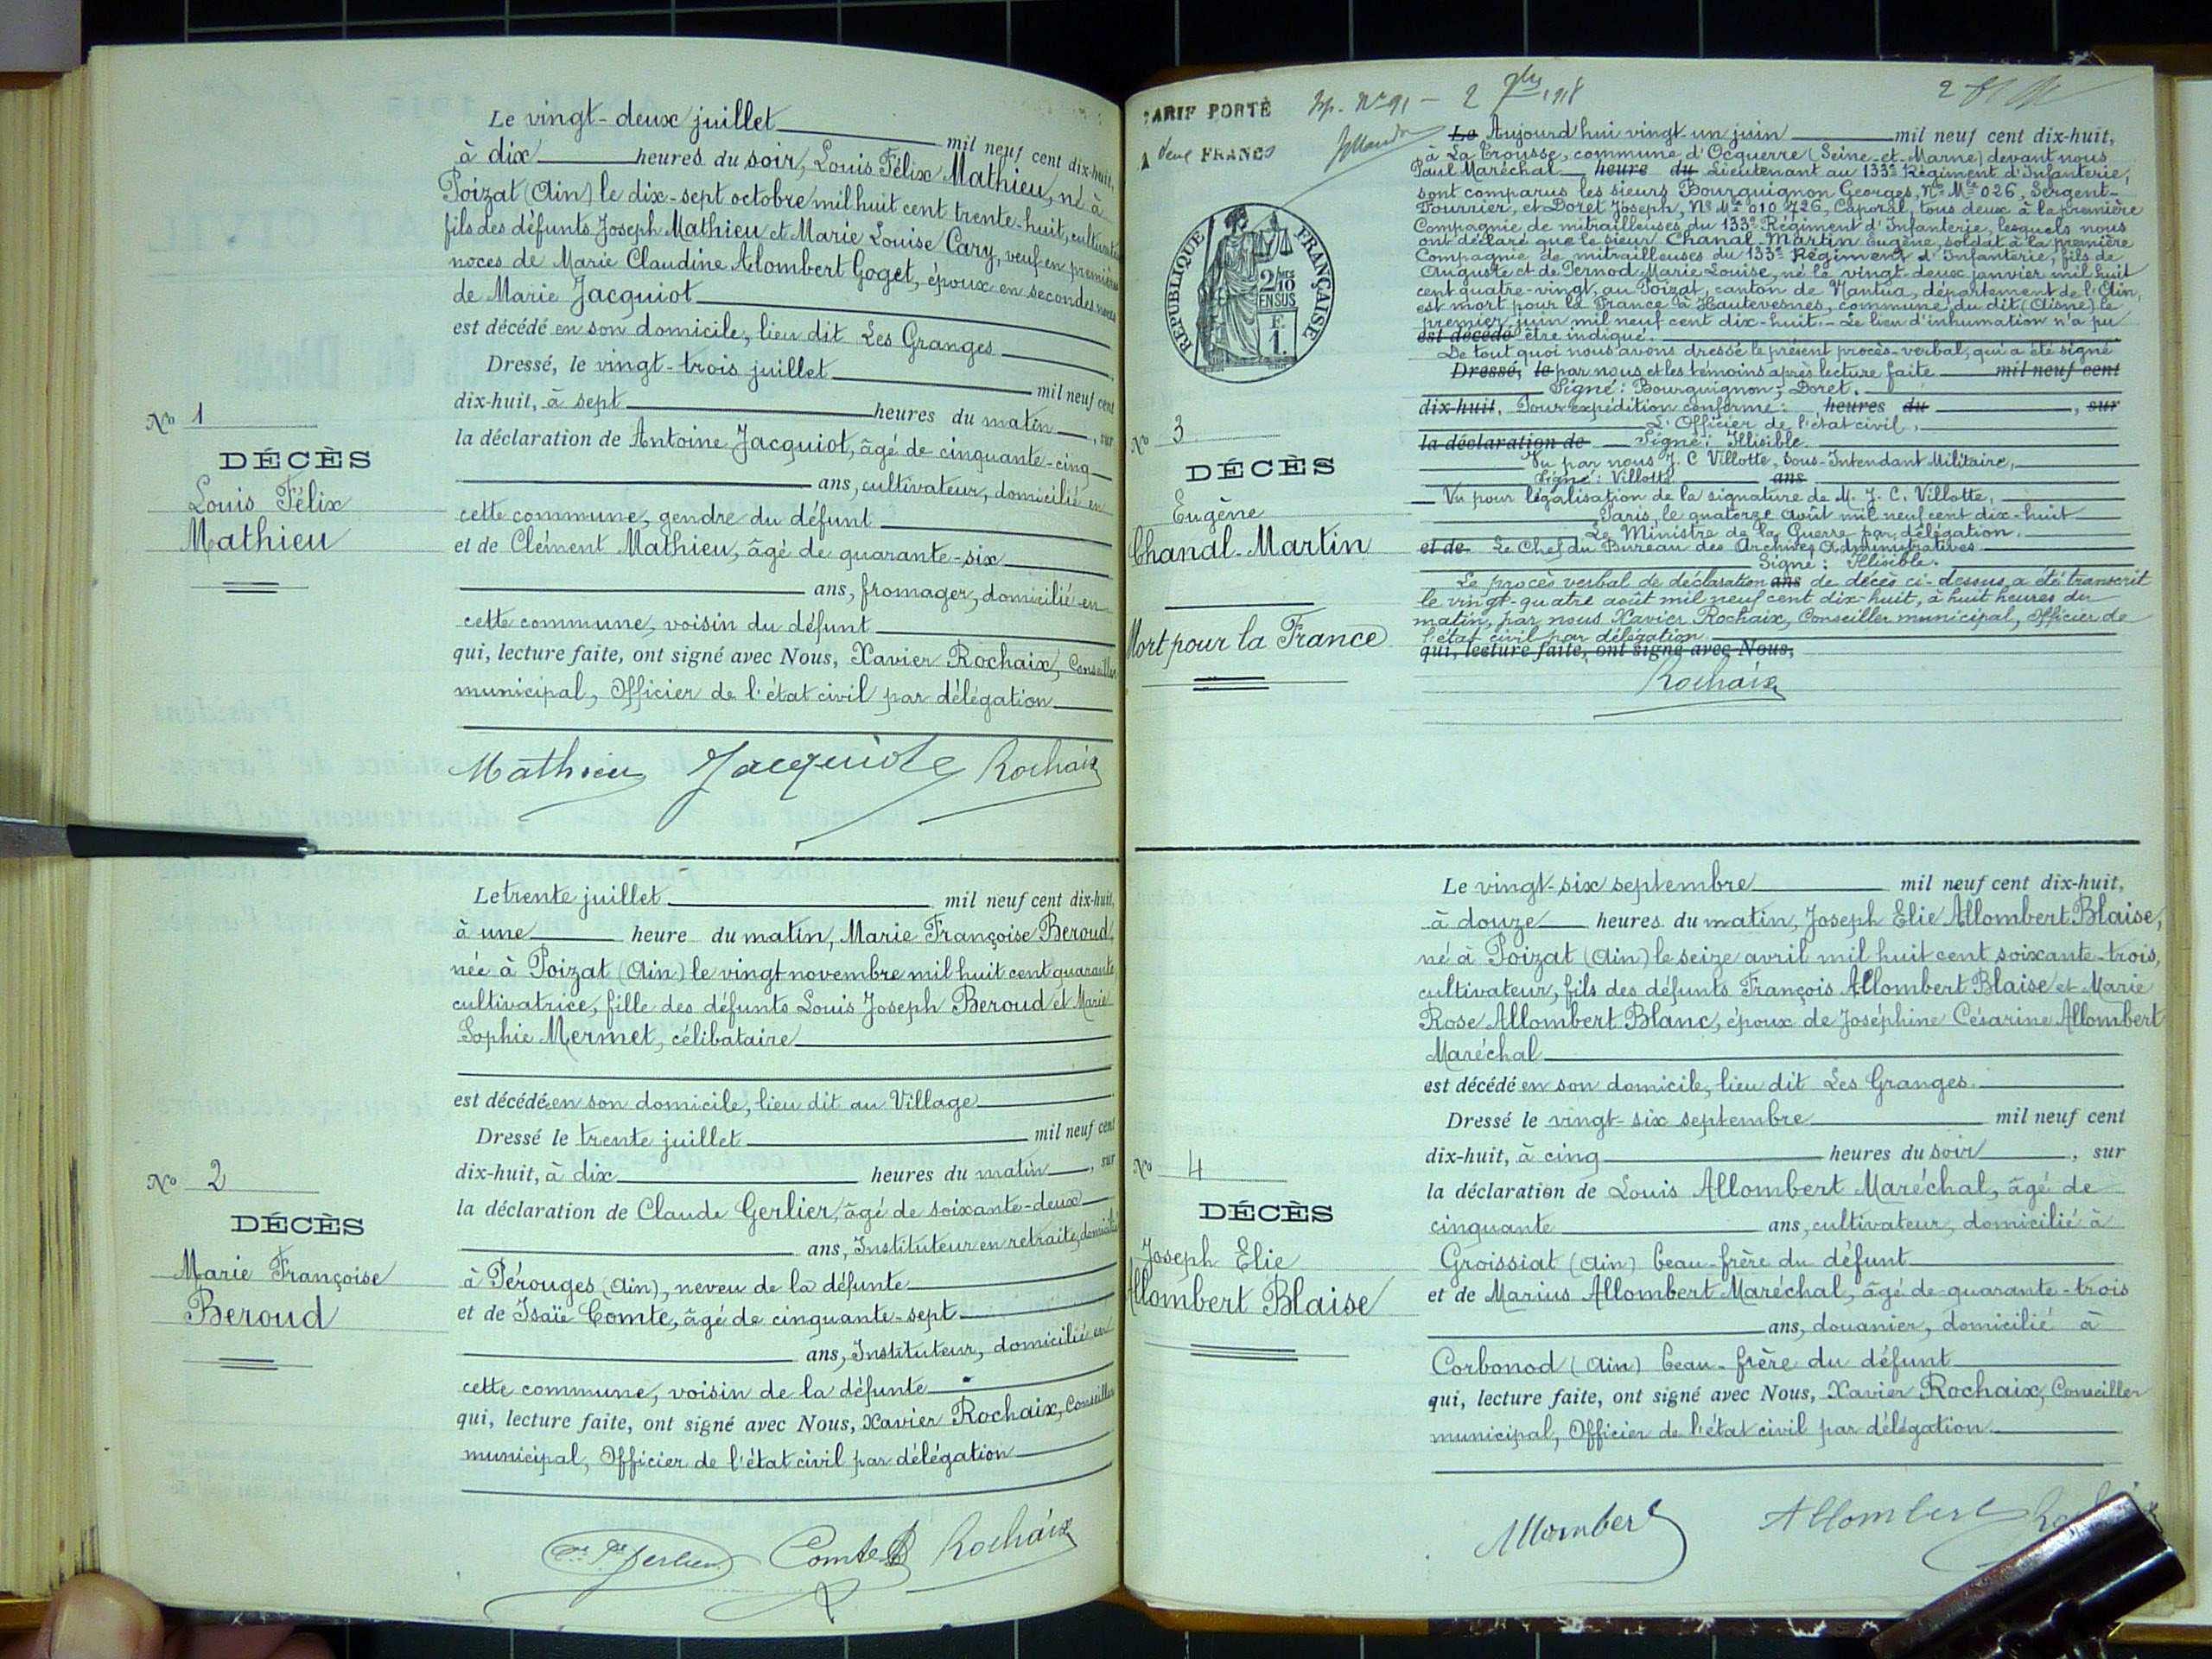 Le vingt-deux juillet mil neuf cent dix-huit,
à dix heures du soir, Louis Félix Mathieu, né à
Poizat (Ain) le dix-sept octobre mil huit cent trente-huit, cultivateur
fils des défunts Joseph Mathieu et Marie Louise Cary, veuf en premières
noces de Marie Claudine Alombert Goget, époux en secondes noces
de Marie Jacquiot
est décédé en son domicile, lieu dit Les Granges
Dressé, le vingt-trois juillet mil neuf cent
dix-huit, à sept heures du matin, sur
No 1
la déclaration de Antoine Jacquiot, âgé de cinquante-cinq
DÉCÈS
ans, cultivateur, domicilié en
Louis Félix
cette commune, gendre du défunt
Mathieu
et de Clément Mathieu, âgé de quarante-six
ans, fromager, domicilié en
cette commune, voisin du défunt
qui, lecture faite, ont signé avec Nous, Xavier Rochaix, Conseiller
municipal, Officier de l'état civil par délégation
Mathieu Jacquiot Rochaix
Le trente juillet mil neuf cent dix-huit,
à une heure du matin, Marie Françoise Beroud,
née à Poizat (Ain) le vingt novembre mil huit cent quarante
cultivatrice, fille des défunts Louis Joseph Beroud et Marie
Sophie Mermet, célibataire
est décédée en son domicile, lieu dit au Village
Dressé le trente juillet mil neuf cent
dix-huit, à dix heures du matin, sur
No 2
la déclaration de Claude Gerlier, âgé de soixante-deux
DÉCÈS
ans, Instituteur en retraite, domicilié
Marie Françoise
à Pérouges (Ain), neveu de la défunte
Beroud
et de Isaïe Comte, âgé de cinquante-sept
ans, Instituteur, domicilié en
cette commune, voisin de la défunte
qui, lecture faite, ont signé avec Nous, Xavier Rochaix, Conseiller
municipal, Officier de l'état civil par délégation
Gerlier Comte Rochaix
TARIF PORTÉ
A deux FRANCS
RÉPUBLIQUE FRANÇAISE
2/10
EN SUS
F.
1.
Le Aujourd'hui vingt-un juin mil neuf cent dix-huit,
à La Trousse, commune d'Ocquerre (Seine-et-Marne) devant nous
Paul Maréchal heure du Lieutenant au 133e Régiment d'Infanterie,
sont comparus les sieurs Bourguignon Georges, No Mle 026, Sergent-
Fourrier, et Doret Joseph, No Mle 010.726, Caporal, tous deux à la première
Compagnie de mitrailleuses du 133e Régiment d'Infanterie, lesquels nous
ont déclaré que le sieur Chanal-Martin Eugène, soldat à la première
Compagnie de mitrailleuses du 133e Régiment d'Infanterie, fils de
Auguste et de Pernod Marie Louise, né le vingt-deux janvier mil huit
cent quatre-vingt, au Poizat, canton de Nantua, département de l'Ain,
est mort pour la France à Hautevesnes, commune du dit (Aisne) le
premier juin mil neuf cent dix-huit. - Le lieu d'inhumation n'a pu
est décédé être indiqué.
De tout quoi nous avons dressé le présent procès-verbal, qui a été signé
Dressé, le par nous et les témoins après lecture faite mil neuf cent
Signé: Bourguignon; Doret.
dix-huit, Pour expédition conforme: heures du, sur
L'Officier de l'état civil,
la déclaration de Signé: Illisible.
Vu par nous J. C Villotte, Sous-Intendant Militaire,
Signé: Villotte ans
Vu pour légalisation de la signature de M. J. C. Villotte,
Paris, le quatorze août mil neuf cent dix-huit
Le Ministre de la Guerre par délégation.
et de Le Chef du Bureau des Archives Administratives
Signé: Illisible.
Le procès verbal de déclaration ans de décès ci-dessus a été transcrit
le vingt-quatre août mil neuf cent dix-huit, à huit heures du
matin, par nous Xavier Rochaix, Conseiller municipal, Officier de
l'état civil par délégation
qui, lecture faite, ont signé avec Nous,
Rochaix
No 3
DÉCÈS
Eugène
Chanal-Martin
Mort pour la France
Le vingt-six septembre mil neuf cent dix-huit,
à douze heures du matin, Joseph Elie Allombert Blaise,
né à Poizat (Ain) le seize avril mil huit cent soixante-trois,
cultivateur, fils des défunts François Allombert Blaise et Marie
Rose Allombert Blanc, époux de Joséphine Césarine Allombert
Maréchal
est décédé en son domicile, lieu dit Les Granges.
Dressé le vingt-six septembre mil neuf cent
dix-huit, à cinq heures du soir, sur
No 4
la déclaration de Louis Allombert Maréchal, âgé de
DÉCÈS
cinquante ans, cultivateur, domicilié à
Joseph Elie
Groissiat (Ain) beau-frère du défunt
Allombert Blaise
et de Marius Allombert Maréchal, âgé de quarante-trois
ans, douanier, domicilié à
Corbonod (Ain) beau-frère du défunt
qui, lecture faite, ont signé avec Nous, Xavier Rochaix, Conseiller
municipal, Officier de l'état civil par délégation.
Allombert Allombert